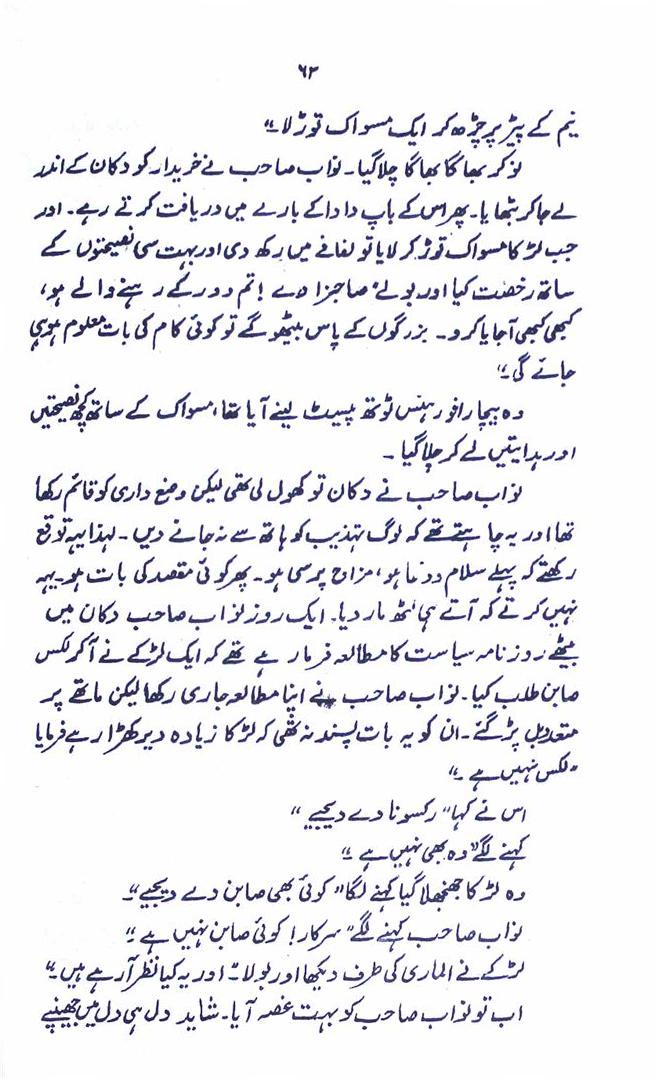 ۶۳
نیم کے پیڑ پر چڑھ کر ایک مسواک توڑ لا۔“
نوکر بھاگا بھاگا چلا گیا۔ نواب صاحب نے خریدار کو دکان کے اندر
لے جا کر بٹھایا۔ پھر اس کے باپ دادا کے بارے میں دریافت کرتے رہے۔ اور
جب لڑکا مسواک توڑ کر لایا تو لفافے میں رکھ دی اور بہت سی نصیحتوں کے
ساتھ رخصت کیا اور بولے ”صاحبزادے! تم دور کے رہنے والے ہو،
کبھی کبھی آجایا کرو۔ بزرگوں کے پاس بیٹھو گے تو کوئی کام کی بات معلوم ہو ہی
جائے گی۔“
وہ بیچارا فورہنس ٹوتھ پیسٹ لینے آیا تھا، مسواک کے ساتھ کچھ نصیحتیں
اور ہدایتیں لے کر چلا گیا۔
نواب صاحب نے دکان تو کھول لی تھی لیکن وضع داری کو قائم رکھا
تھا اور یہ چاہتے تھے کہ لوگ تہذیب کو ہاتھ سے نہ جانے دیں۔ لہذا یہہ توقع
رکھتے کہ پہلے سلام و دعا ہو، مزاج پرسی ہو۔ پھر کوئی مقصد کی بات ہو۔ یہہ
نہیں کرتے کہ آتے ہی لٹھ مار دیا۔ ایک روز نواب صاحب دکان میں
بیٹھے روزنامہ سیاست کا مطالعہ فرما رہے تھے کہ ایک لڑکے نے آکر لکس
صابن طلب کیا۔ نواب صاحب نے اپنا مطالعہ جاری رکھا لیکن ماتھے پر
متعدد بل پڑ گئے۔ ان کو یہ بات پسند نہ تھی کہ لڑکا زیادہ دیر کھڑا رہے فرمایا
”لکس نہیں ہے۔“
اس نے کہا ”رکسونا دے دیجیے“
کہنے لگے ”وہ بھی نہیں ہے۔“
وہ لڑکا جھنجھلا گیا کہنے لگا ”کوئی بھی صابن دے دیجیے“۔
نواب صاحب کہنے لگے ”سرکار! کوئی صابن نہیں ہے۔“
لڑکے نے الماری کی طرف دیکھا اور بولا۔ ”اور یہ کیا نظر آرہے ہیں۔“
اب تو نواب صاحب کو بہت غصہ آیا۔ شاید دل ہی دل میں جھینپے